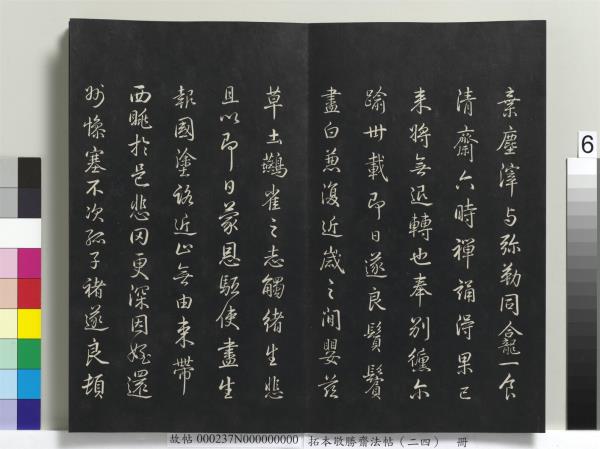 棄塵滓与弥勒同龕一食
清齋六時禪誦得果已
来將無退轉也奉別倏尓
踰卅載即日遂良鬚鬢
盡白兼復近歲之間嬰茲
草土鷰雀之志觸緒生悲
且以即日蒙恩駈使盡生
報國塗路近止無由束帶
西眺於邑悲罔更深因姪還
州慘塞不次孤子褚遂良頓
故帖 000237N000000000 拓本敬勝齋法帖(二四) 冊
6